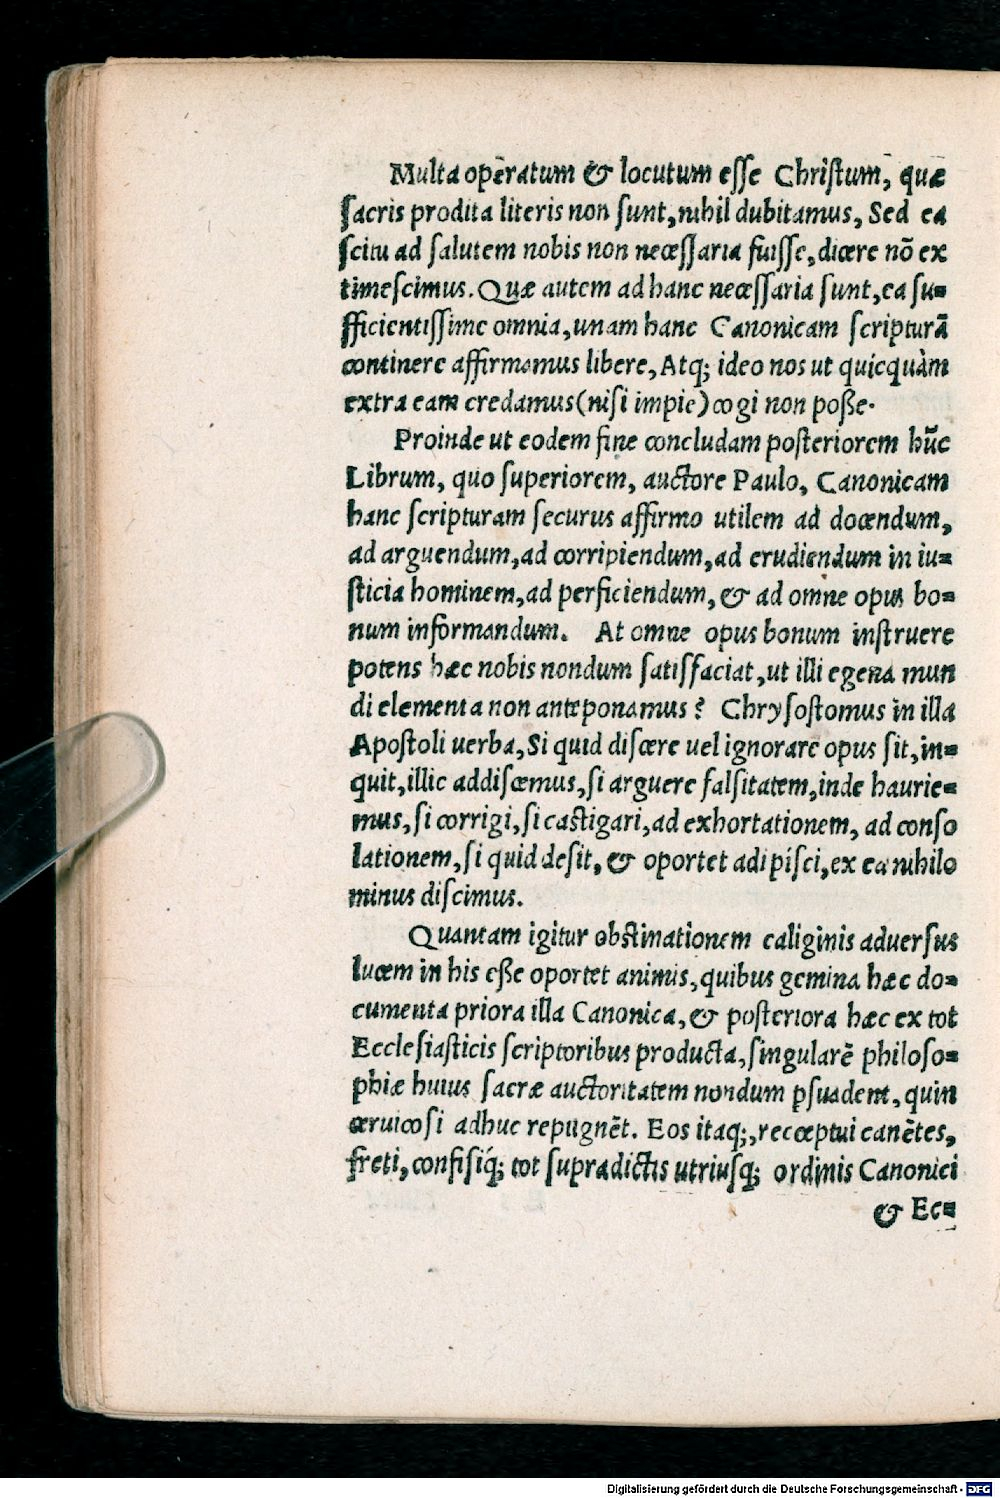 Multa operatum & locutum esse Christum, quæ
sacris prodita literis non sunt, nihil dubitamus, Sed ea
scitu ad salutem nobis non necessaria fuisse, dicere nõ ex
timescimus. Quæ autem ad hanc necessaria sunt, ea su=
fficientissime omnia, unam hanc Canonicam scripturã
continere affirmamus libere, Atq; ideo nos ut quicquàm
extra eam credamus (nisi impie) cogi non poße.
Proinde ut eodem fine concludam posteriorem hũc
Librum, quo superiorem, auctore Paulo, Canonicam
hanc scripturam securus affirmo utilem ad docendum,
ad arguendum, ad corripiendum, ad erudiendum in iu=
sticia hominem, ad perficiendum, & ad omne opus bo=
num informandum. At omne opus bonum instruere
potens hæc nobis nondum satisfaciat, ut illi egena mun
di elementa non anteponamus? Chrysostomus in illa
Apostoli uerba, Si quid discere uel ignorare opus sit, in=
quit, illic addiscemus, si arguere falsitatem, inde haurie=
mus, si corrigi, si castigari, ad exhortationem, ad conso
lationem, si quid desit, & oportet adipisci, ex ea nihilo
minus discimus.
Quantam igitur obstinationem caliginis aduersus
lucem in his eße oportet animis, quibus gemina hæc do=
cumenta priora illa Canonica, & posteriora hæc ex tot
Ecclesiasticis scriptoribus producta, singularẽ philoso=
phiæ huius sacræ auctoritatem nondum psuadent, quin
ceruicosi adhuc repugnẽt. Eos itaq;, receptui canẽtes,
freti, confisiq́; tot supradictis utriusq; ordinis Canonici
& Ec=
Digitalisierung gefördert durch die Deutsche Forschungsgemeinschaft - DFG